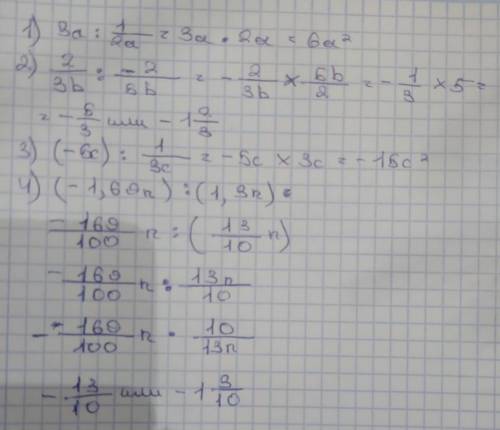 1) 3a : 1/2a = 3a • 2a = 6a²
2) 2/3b : -2/5b = - 2/3b × 5b/2 = - 1/3 × 5 =
= - 5/3 или - 1 2/3
3) (-5c) : 1/3c = -5c × 3c = -15c²
4) (-1,69n) : (1,3n) =
- 169/100 n : (13/10 n)
- 169/100 n : 13n/10
- 169/100 n • 10/13n
- 13/10 или - 1 3/10